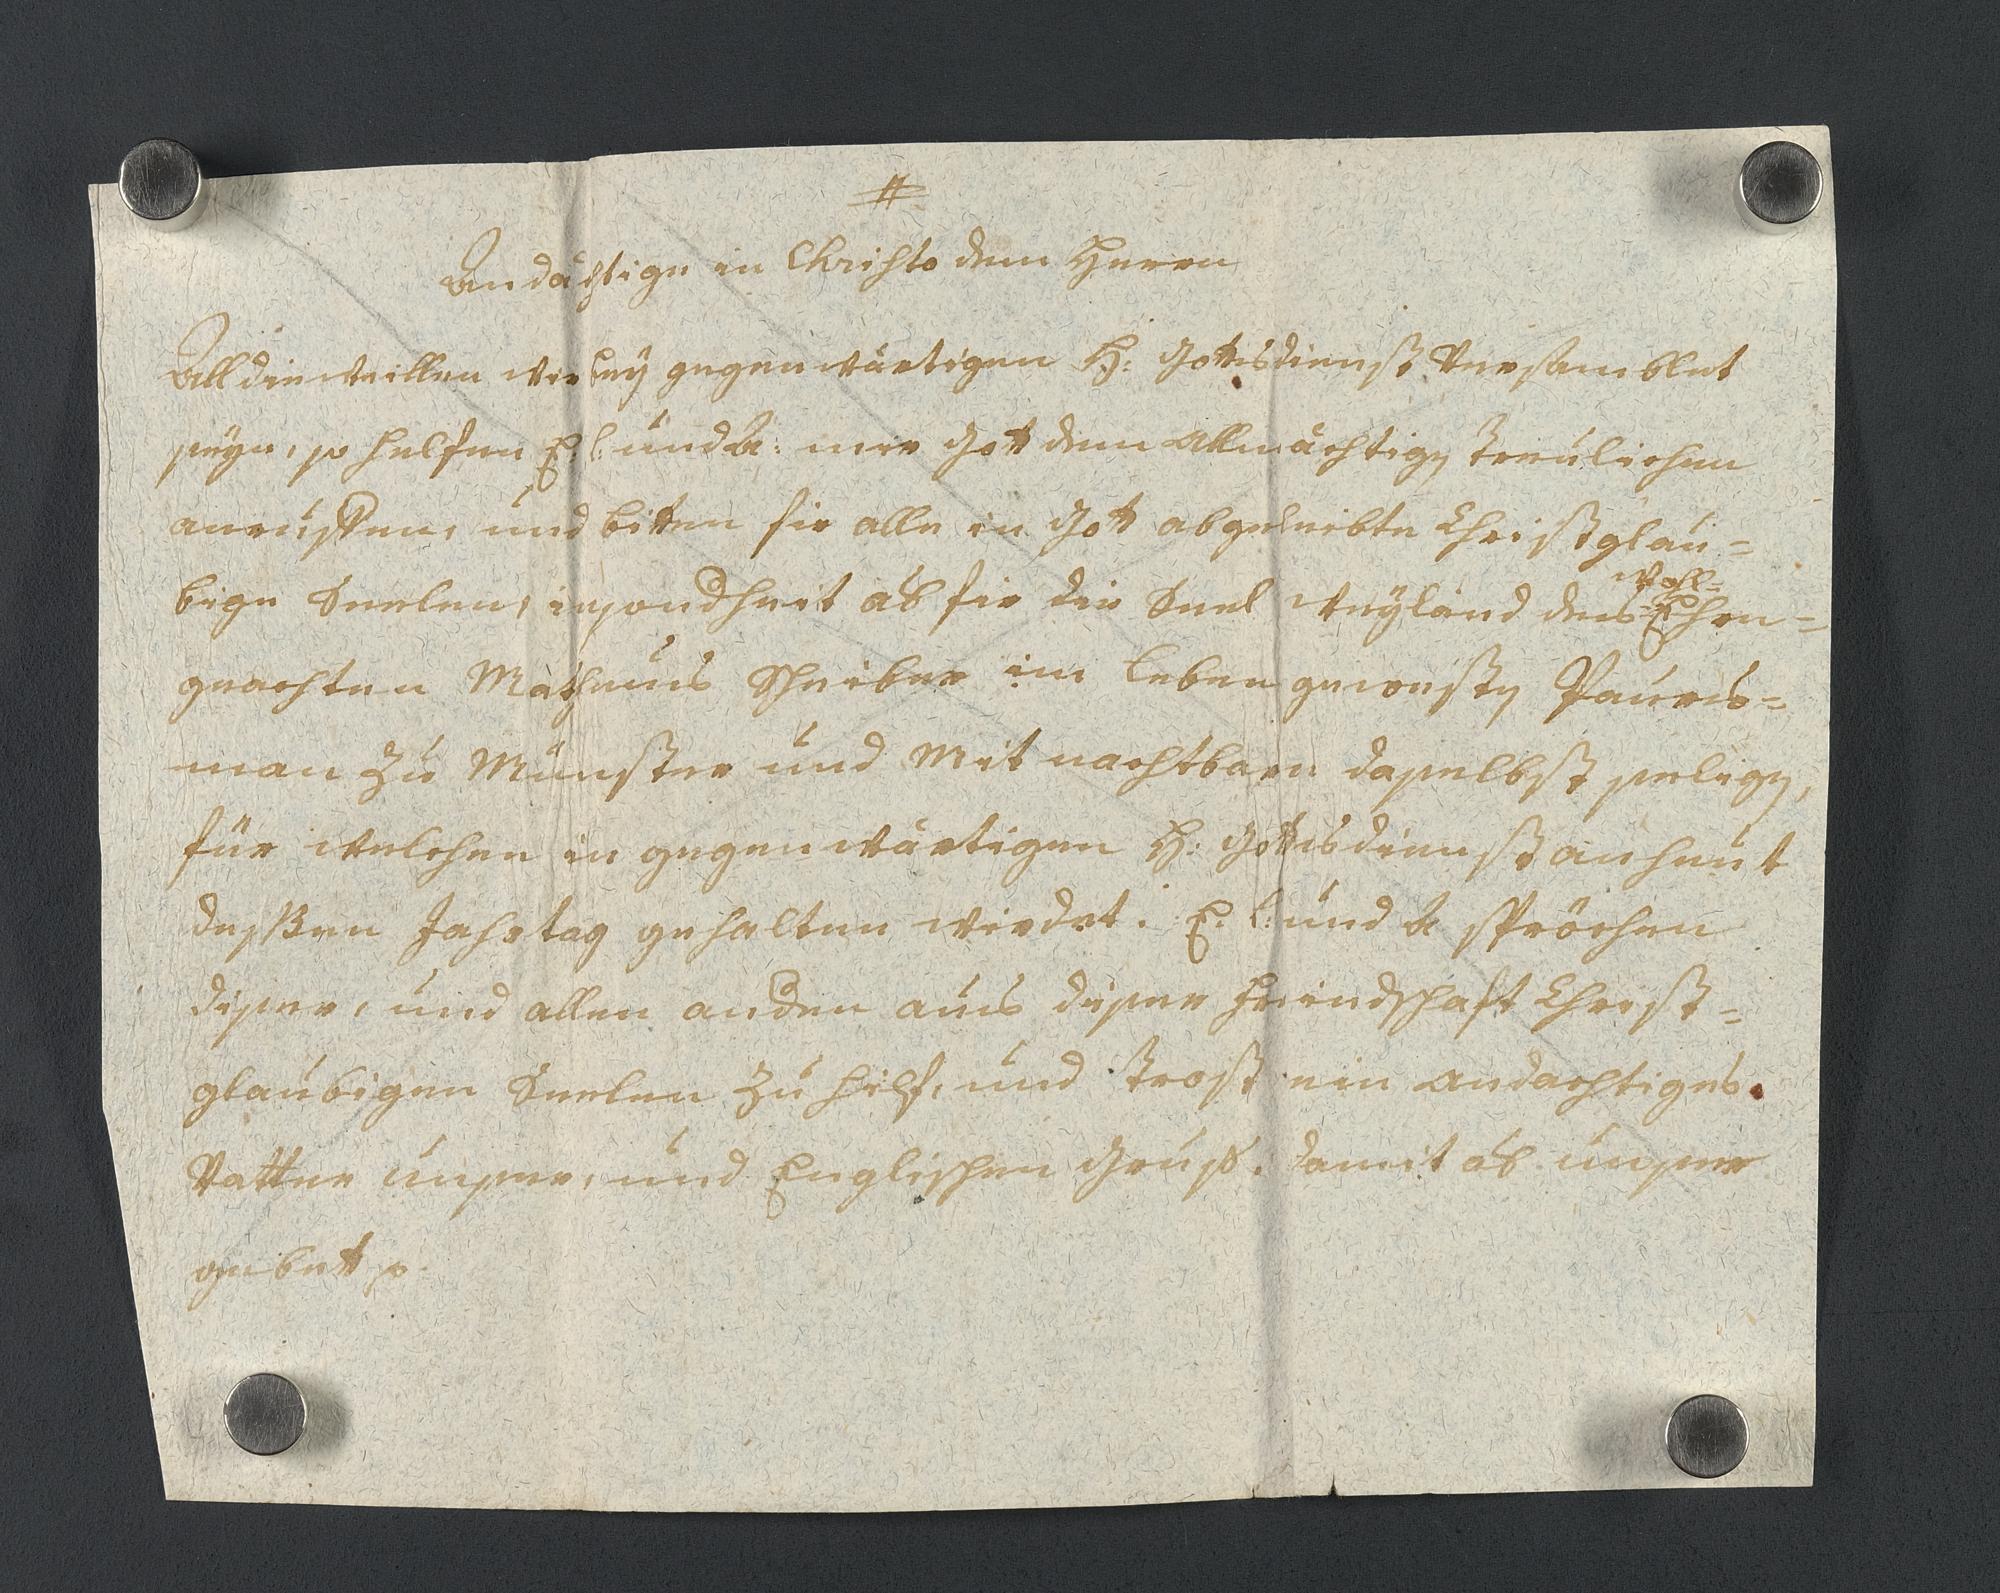 #
Andächtige in Christo dem Herrn
Alldieweillen wir bey gegenwärtigen H: Gottesdienst Versamblet
seyn, so helfen E. L: und A: mir Gott dem Allmächtigen treulichen
anrueffen, und bitten fir alle in Gott abgeleibte Christglau=
bige Seelen, insondheit ab fir die Seel weyland des wohl= Ehren=
geachten Matheus Schreiber im leben gewesten Paurs=
man zu Münster und Mit nachtbarn daselbst seligen,
für welchen in gegenwärtigen H: Gottesdienst anheut
dessen Jahrtag gehalten wirdet. E. L: und A spröchen
diser, und allen anden aus diser Freindschaft Christ=
glaubigen Seelen zu hilf, und trost ein andächtiges
Vatter unser, und Englischen Gruß. damit ab unser
gebett p.